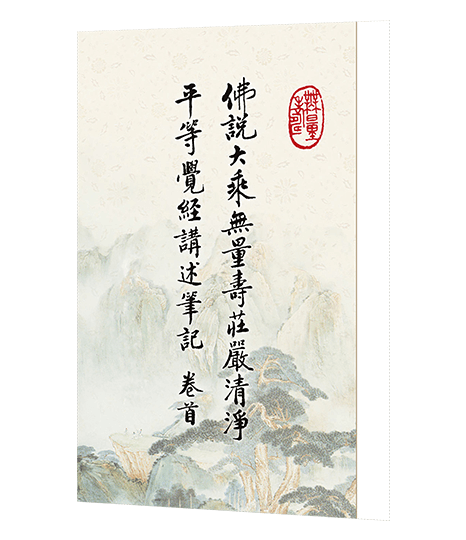 佛說大乘無量壽莊嚴清淨
平等覺經講述筆記 卷首
無量壽